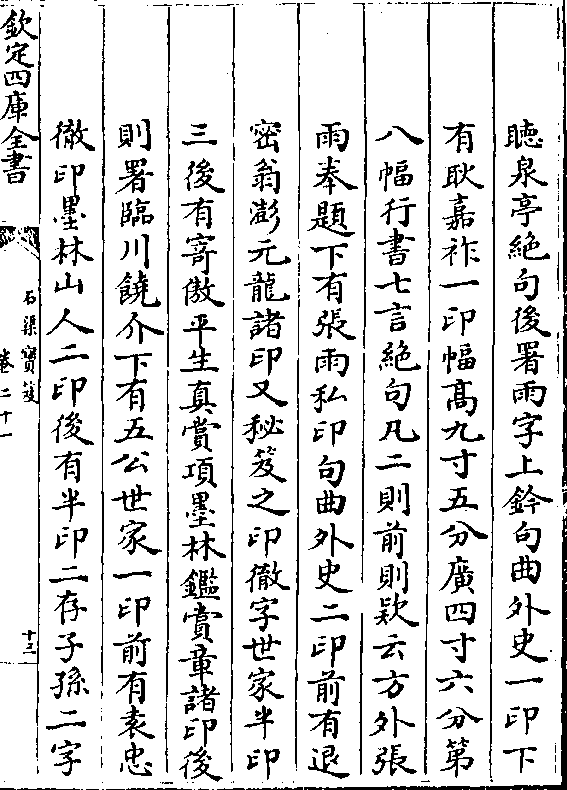 聴泉亭絶句後署雨字上鈐句曲外史一印下
有耿嘉祚一印幅髙九寸五分廣四寸六分第
八幅行書七言絶句凡二則前則欵云方外張
雨奉題下有張雨私印句曲外史二印前有退
密翁澎元龍諸印又秘笈之印徹字世家半印
三後有寄傲平生真賞項墨林鑑賞章諸印後
則署臨川饒介下有五公世家一印前有袁忠
徹印墨林山人二印後有半印二存子孫二字
欽定四庫全書
石渠寳笈
卷二十一
十三